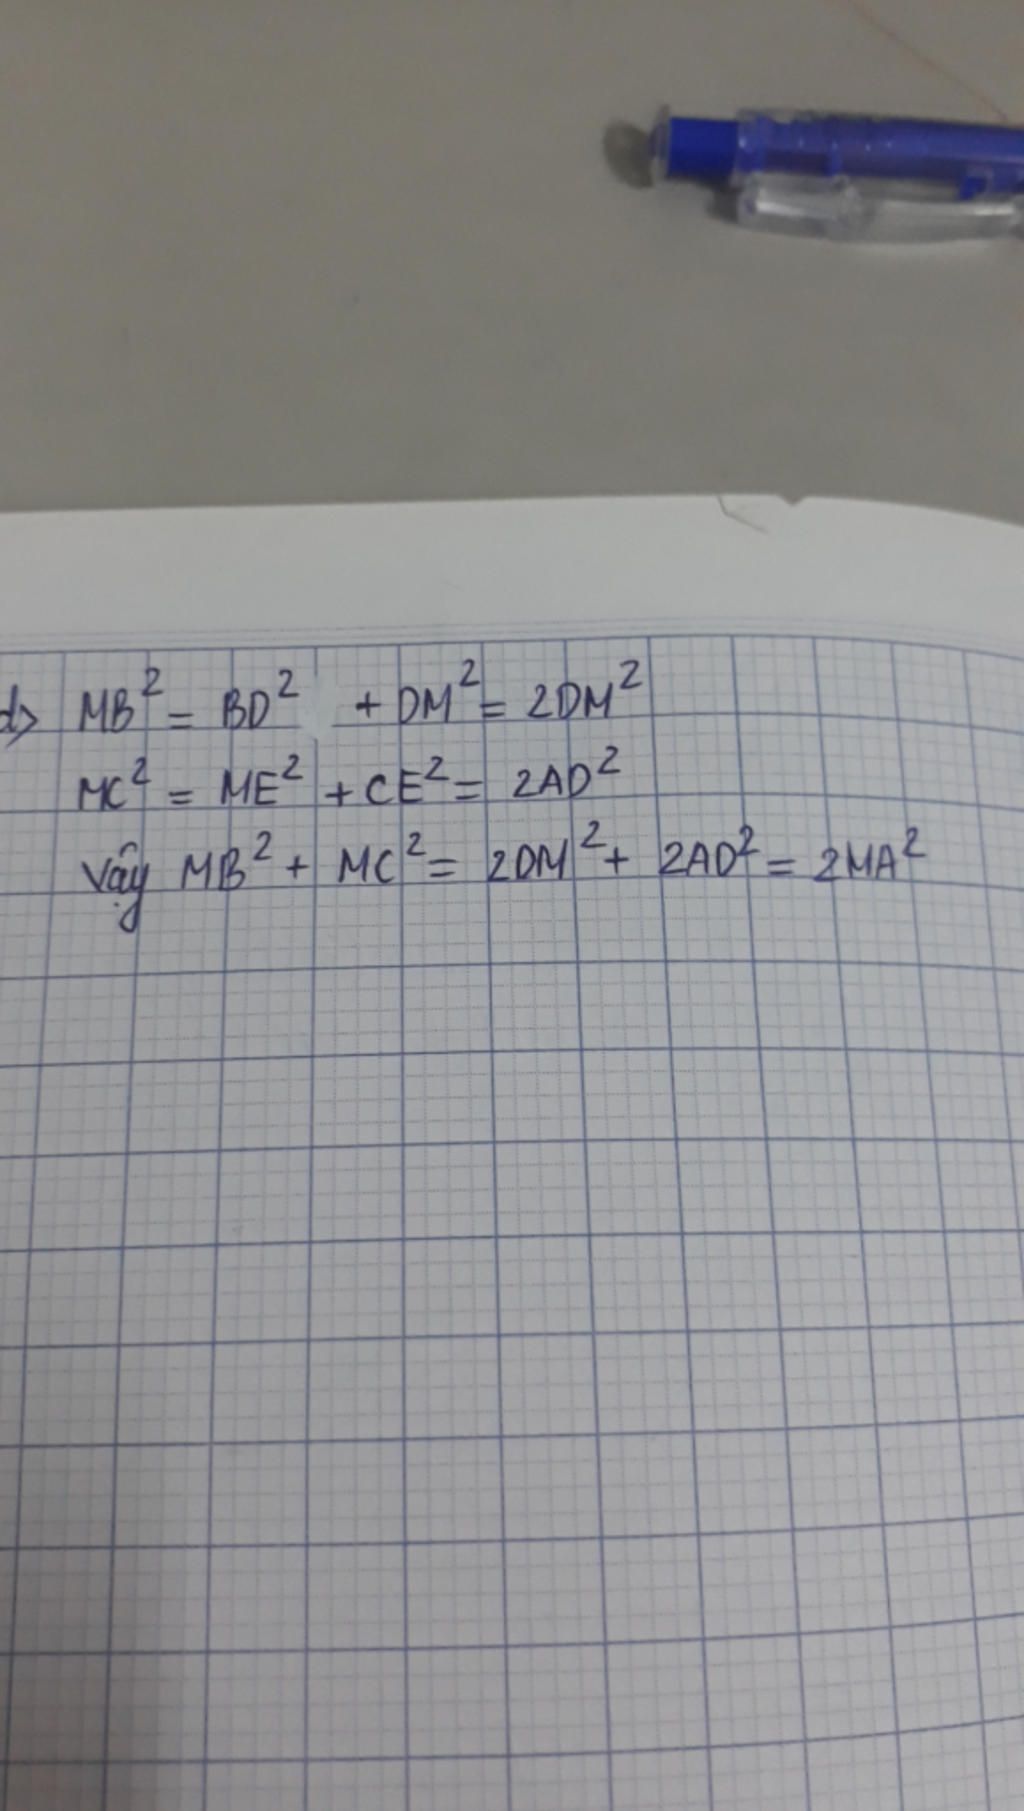 d> MB² = BD² + DM² = 2DM²
MC² = ME² + CE² = 2AD²
Vậy MB² + MC² = 2DM² + 2AD² = 2MA²